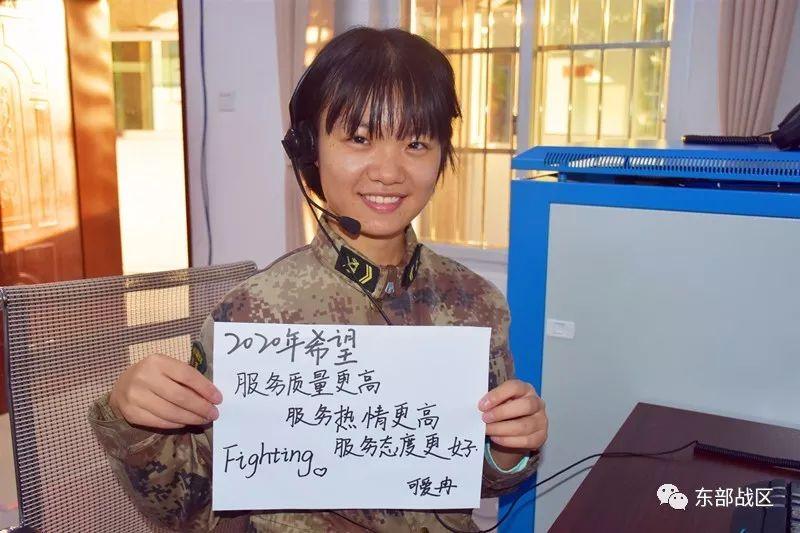 2020年希望
服务质量更高
服务热情更高
Fighting♡ 服务态度更好
可爱冉
东部战区